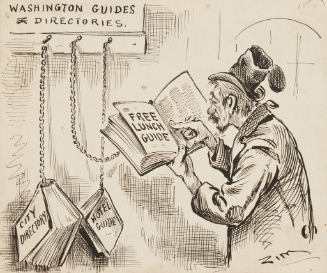 WASHINGTON GUIDES
& DIRECTORIES.
FREE
LUNCH
GUIDE
CITY
DIRECTORY
HOTEL
GUIDE
ZIM